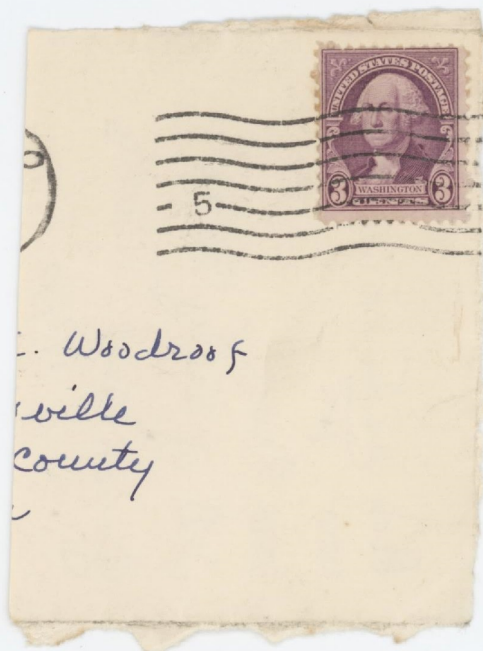 UNITED STATES POSTAGE
3 WASHINGTON 3
CENTS
5
. Woodroof
ville
County